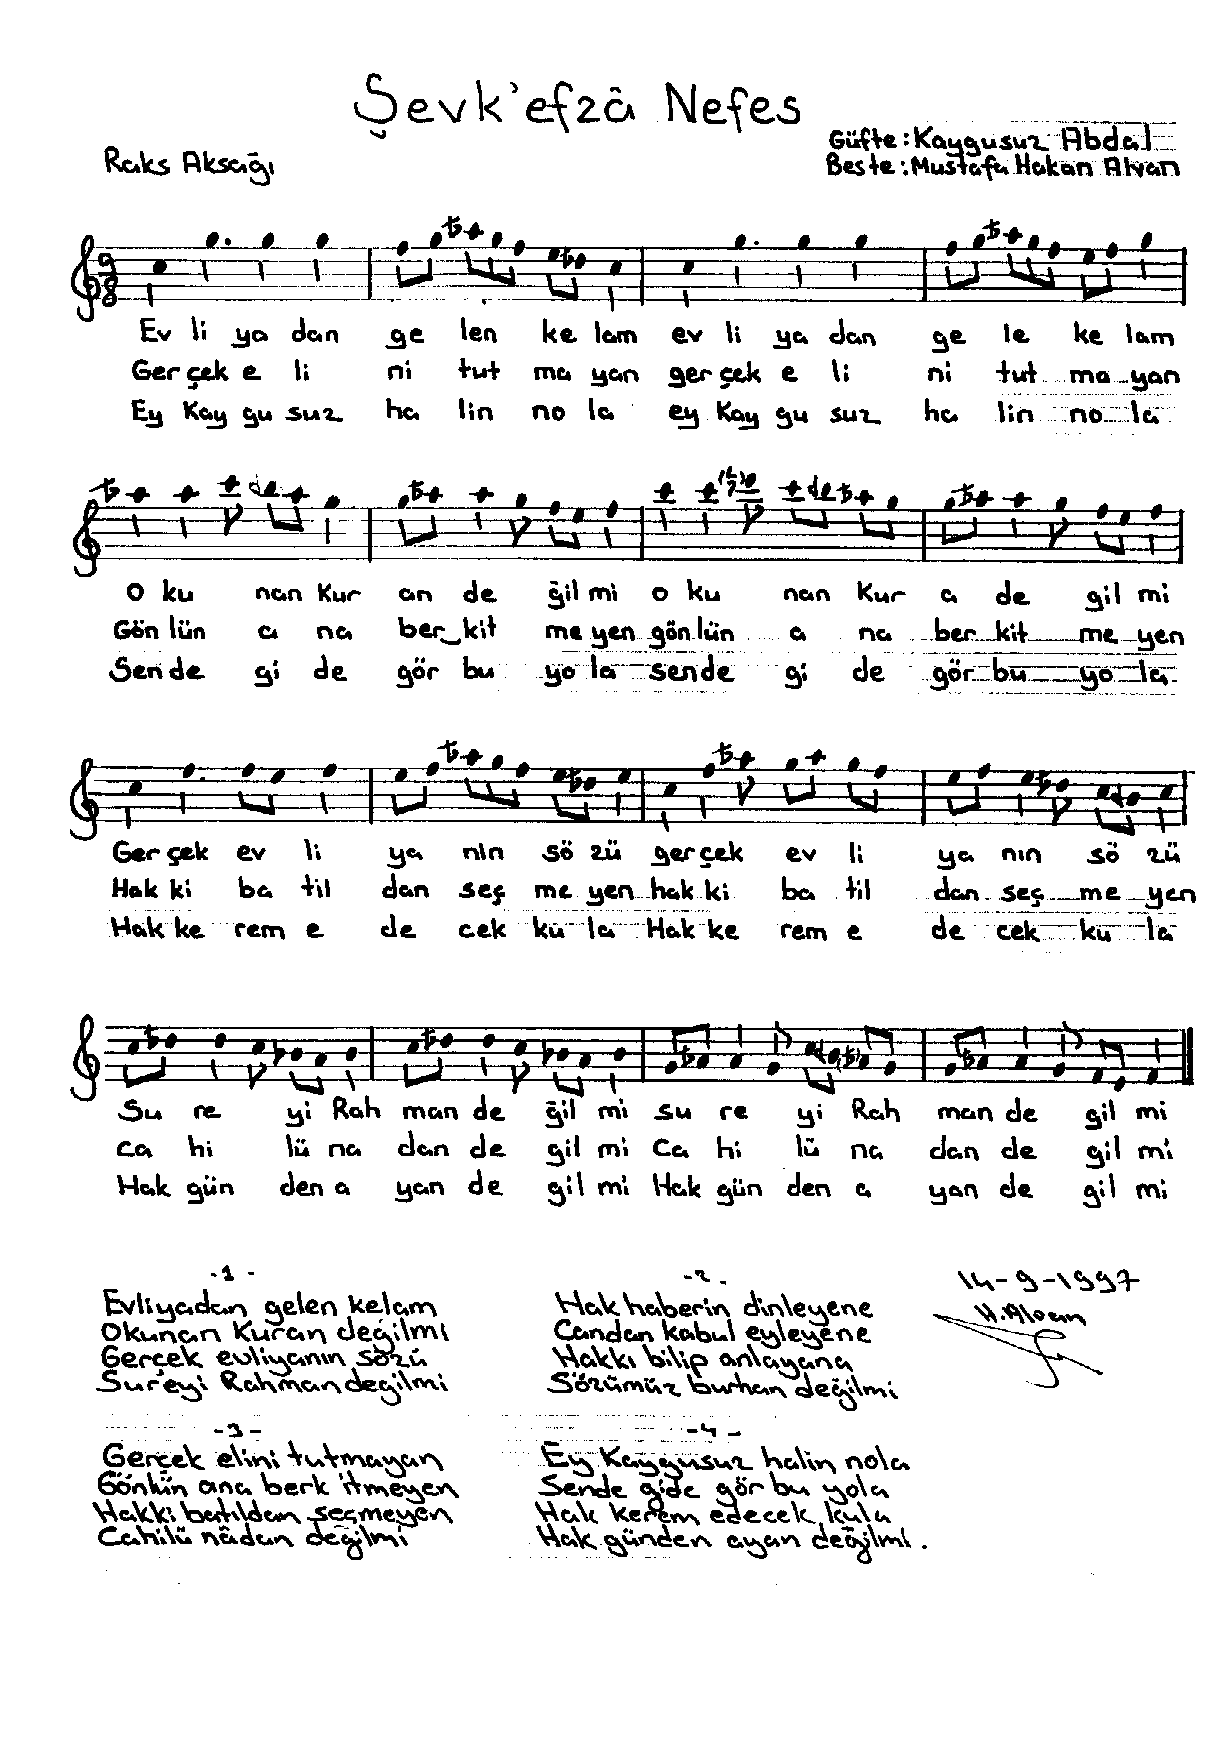 Şevk'efzâ Nefes
Güfte: Kaygusuz Abdal
Raks Aksağı
Beste: Mustafa Hakan Alvan
9
8
Ev li ya dan ge len ke lam ev li ya dan ge le ke lam
Ger çek e li ni tut ma yan ger çek e li ni tut ma yan
Ey Kay gu suz ha lin no la ey Kay gu suz ha lin no la
O ku nan Kur an de ğil mi o ku nan Kur a de gil mi
Gön lün a na ber kit me yen gön lün a na ber kit me yen
Sen de gi de gör bu yo la sen de gi de gör bu yo la
Ger çek ev li ya nin sö zü ger çek ev li ya nın sö zü
Hak ki ba til dan seç me yen hak ki ba til dan seç me yen
Hak ke rem e de cek ku la Hak ke rem e de cek ku la
Su re yi Rah man de ğil mi su re yi Rah man de gil mi
ca hi lü na dan de gil mi Ca hi lü na dan de gil mi
Hak gün den a yan de gil mi Hak gün den a yan de gil mi
-1-
Evliyadan gelen kelam
Okunan Kuran değilmi
Gerçek evliyanın sözü
Sur'eyi Rahman değilmi
-2-
Hak haberin dinleyene
Candan kabul eyleyene
Hakkı bilip anlayana
Sözümüz burhan değilmi
14-9-1997
H. Alvan
-3-
Gerçek elini tutmayan
Gönlün ana berk itmeyen
Hakki batıldan seçmeyen
Cahilü nâdan değilmi
-4-
Ey Kaygusuz halin nola
Sende gide gör bu yola
Hak kerem edecek kula
Hak günden ayan değilmi.